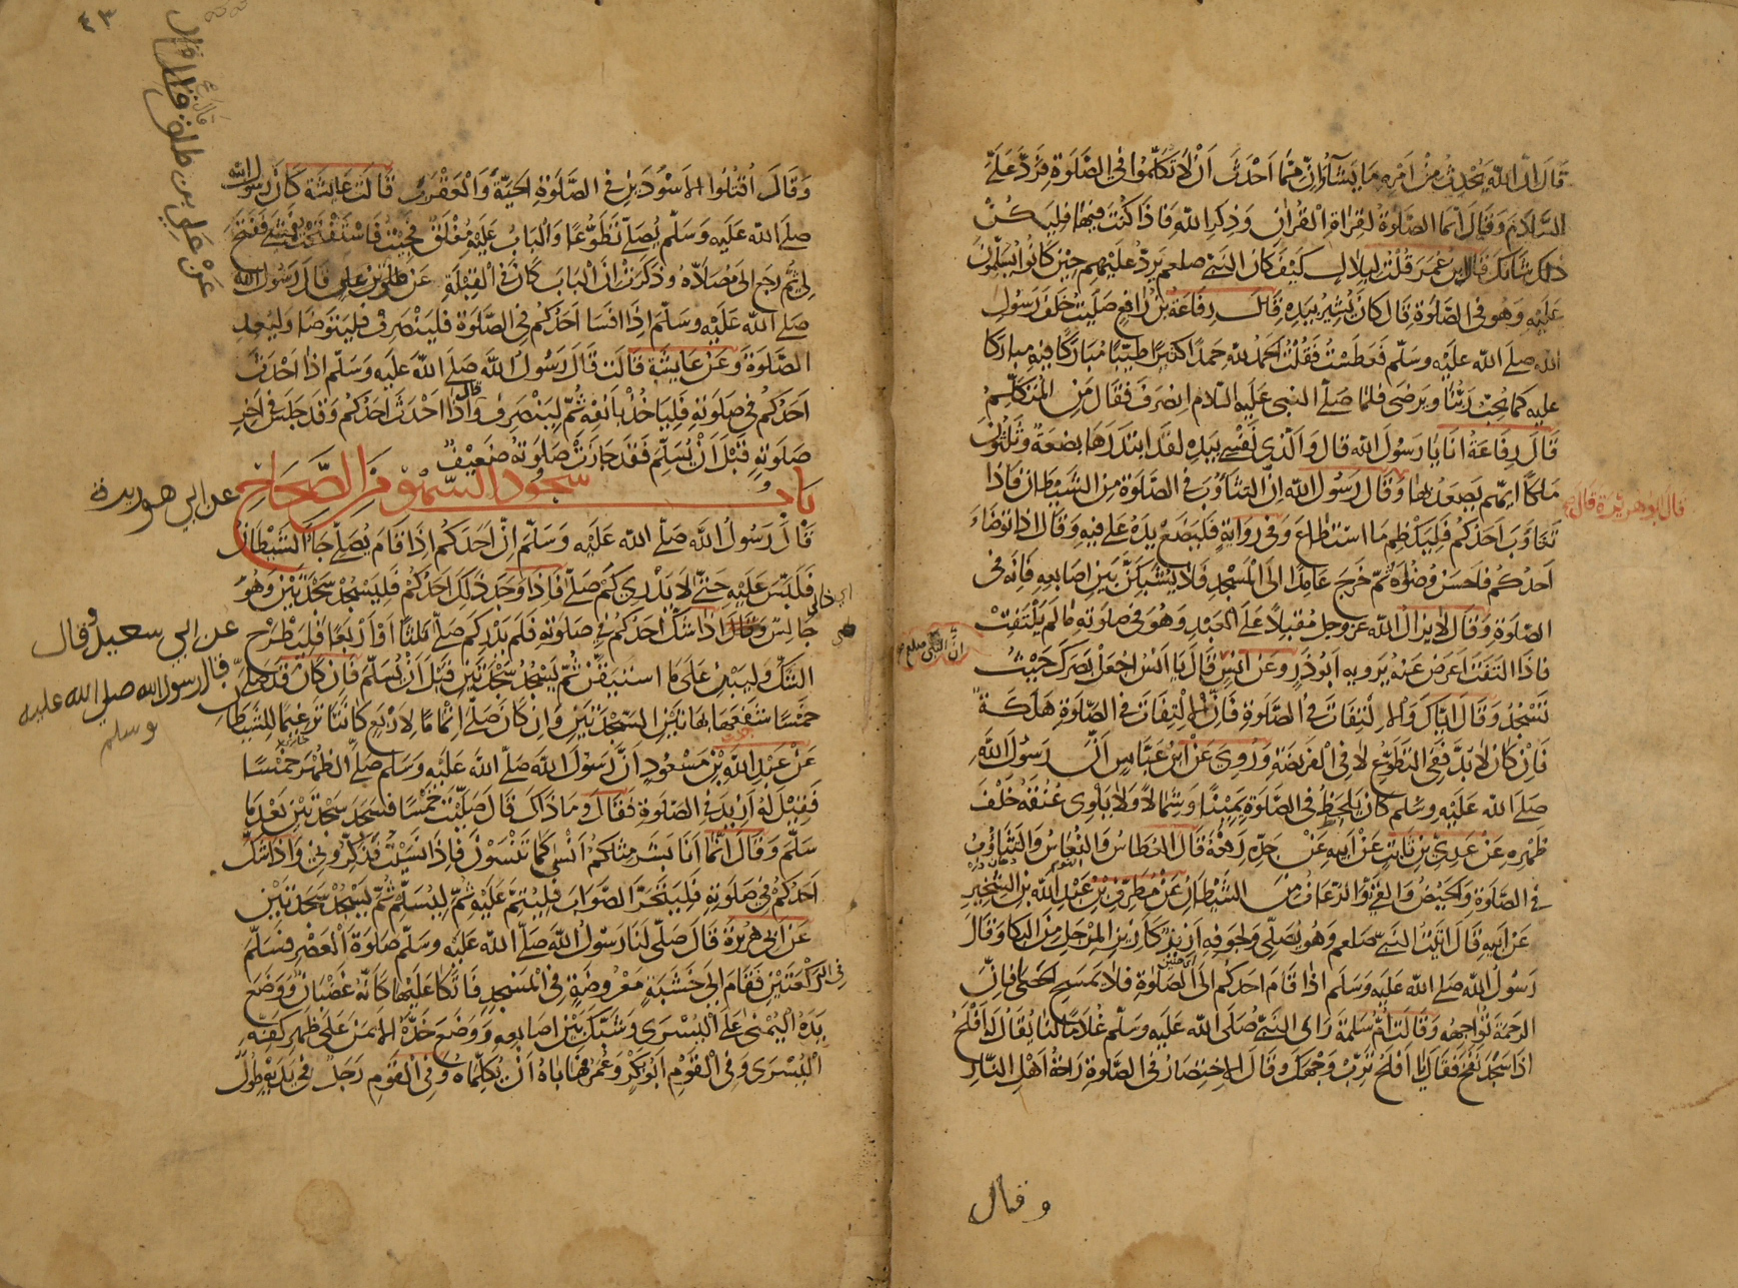 قَالَ اِنَّ اللّٰهَ يُحْدِثُ مِنْ اَمْرِهِ مَا يَشَآءُ وَاِنَّ مِمَّا اَحْدَثَ اَنْ لَا تَكَلَّمُوْا فِى الصَّلٰوةِ فَرَدَّ عَلَىَّ
السَّلَامَ وَقَالَ اِنَّمَا الصَّلٰوةُ لِقِرَاءَةِ الْقُرْاٰنِ وَذِكْرِ اللّٰهِ فَاِذَا كُنْتَ فِيْهَا فَلْيَكُنْ
ذٰلِكَ شَأنُكَ قَالَ ابن عُمَرَ قُلْتُ لِبِلَالٍ كَيْفَ كَانَ النَّبِىُّ صلعم يَرُدُّ عَلَيْهِمْ حِيْنَ كَانُوْا يُسَلِّمُوْنَ
عَلَيْهِ وَهُوَ فِى الصَّلٰوةِ قَالَ كَانَ يُشِيْرُ بِيَدِهِ قَالَ رِفَاعَةُ بْنُ رَافِعٍ صَلَّيْتُ خَلْفَ رَسُوْلِ
اللّٰهِ صلى الله عليه وسلم فَعَطَسْتُ فَقُلْتُ الحَمْدُ لِلّٰهِ حَمْدًا كَثِيْرًا طَيِّبًا مُبَارَكًا فِيْهِ مباركا
عليه كما يُحِبُّ رَبُّنَا وَيَرْضٰى فَلَمَّا صَلَّى النبى عَلَيْهِ السَّلَام اِنْصَرَفَ فَقَالَ مَنِ الْمُتَكَلِّمُ
قَالَ رِفَاعَةُ اَنَا يَا رَسُوْلَ اللّٰهِ قال وَالَّذِى نَفْسِى بِيَدِهِ لَقَدِ ابْتَدَرَهَا بِضْعَةٌ وَثَلٰثُوْنَ
مَلَكًا اَيُّهُمْ يَصْعَدُ بِهَا وَقَالَ رَسُوْلُ اللّٰهِ اِنَّ التَّثَاؤُبَ فِى الصَّلٰوةِ مِنَ الشَّيْطَانِ فَاِذَا
قال ابو هريرة قال
تَثَاوَبَ اَحَدُكُمْ فَلْيَكْظِمْ مَا اسْتَطَاعَ وَفِى رِوَايَةٍ فَلْيَضَعْ يَدَهُ عَلٰى فِيْهِ وَقَالَ اِذَا تَوَضَّاءَ
اَحَدُكُمْ فَاَحْسَنَ وُضُوْءَهُ ثُمَّ خَرَجَ عَامِدًا اِلَى الْمَسْجِدِ فَلَا يُشَبِّكَنَّ بَيْنَ اَصَابِعِهِ فَاِنَّهُ فِى
الصَّلٰوةِ وَقَالَ لَا يَزَالُ اللّٰهُ عَزَّ وَجَلَّ مُقْبِلًا عَلَى الْعَبْدِ وَهُوَ فِى صَلٰوتِهِ مَا لَمْ يَلْتَفِتْ
فَاِذَا الْتَفَتَ اَعْرَضَ عَنْهُ يَرْوِيْهِ اَبُوْ ذَرٍّ وَعَنْ اَنَسٍ قَالَ يَا اَنَسُ اجْعَلْ بَصَرَكَ حَيْثُ
اَنَّ النَّبِىَّ صلعم
تَسْجُدُ وَقَالَ اِيَّاكَ وَالْاِلْتِفَاتَ فِى الصَّلٰوةِ فَاِنَّ الْاِلْتِفَاتَ فِى الصَّلٰوةِ هَلَكَةٌ
فَاِنْ كَانَ لَا بُدَّ فَفِى التَّطَوُّعِ لَا فِى الْفَرِيْضَةِ وَرُوِىَ عَنْ ابْنِ عَبَّاسٍ اَنَّ رَسُوْلَ اللّٰهِ
صَلَّى اللّٰهُ عَلَيْهِ وَسَلَّمَ كَانَ يَلْحَظُ فِى الصَّلٰوةِ يَمِيْنًا وَشِمَالًا وَلَا يَلْوِى عُنُقَهُ خَلْفَ
ظَهْرِهِ عَنْ عَدِىِّ بْنِ ثَابِتٍ عَنْ اَبِيْهِ عَنْ جَدِّهِ رَفَعَهُ قَالَ العُطَاسُ وَالنُّعَاسُ وَالتَّثَاؤُبُ
فِى الصَّلٰوةِ وَالحَيْضُ وَالقَىْءُ وَالرُّعَافُ مِنَ الشَّيْطَانِ عَنْ مُطَرِّفِ بْنِ عَبْدِ اللّٰهِ بْنِ الشِّخِّيْرِ
عَنْ اَبِيْهِ قَالَ اَتَيْتُ النَّبِىَّ صلعم وَهُوَ يُصَلِّى وَلِجَوْفِهِ اَزِيْزٌ كَاَزِيْزِ الْمِرْجَلِ مِنَ الْبُكَا وَقَالَ
رَسُوْلُ اللّٰهِ صَلَّى اللّٰهُ عَلَيْهِ وَسَلَّمَ اِذَا قَامَ اَحَدُكُمْ اِلَى الصَّلٰوةِ فَلَا يَمْسَحِ الحَصٰى فَاِنَّ
الرَّحْمَةَ تُوَاجِهُهُ وَقَالَتْ اُمُّ سَلَمَةَ رَاٰى النَّبِىُّ صَلَّى اللّٰهُ عَلَيْهِ وَسَلَّمَ غُلَامًا لَنَا يُقَالُ لَهُ اَفْلَحُ
اِذَا سَجَدَ نَفَخَ فَقَالَ يَا اَفْلَحُ تَرِّبْ وَجْهَكَ وَقَالَ الْاِخْتِصَارُ فِى الصَّلٰوةِ رَاحَةُ اَهْلِ النَّارِ
وقال
٤٣
وَقَالَ اُقْتُلُوا الْاَسْوَدَيْنِ فِى الصَّلٰوةِ الحَيَّةَ وَالْعَقْرَبَ قَالَتْ عَائِشَةُ كَانَ رَسُوْلُ اللّٰهِ
صَلَّى اللّٰهُ عَلَيْهِ وَسَلَّمَ يُصَلِّى تَطَوُّعًا وَالْبَابُ عَلَيْهِ مُغْلَقٌ فَجِئْتُ فَاسْتَفْتَحْتُ فَمَشٰى فَفَتَحَ
لِى ثُمَّ رَجَعَ اِلٰى مُصَلَّاهُ وَذَكَرَتْ اَنَّ الْبَابَ كَانَ فِى الْقِبْلَةِ عَنْ طلق بن على قَالَ رَسُوْلُ اللّٰهِ
عَنْ عَلِى بن طلق قال قال
صَلَّى اللّٰهُ عَلَيْهِ وَسَلَّمَ اِذَا فَسَا اَحَدُكُمْ فِى الصَّلٰوةِ فَلْيَنْصَرِفْ فَلْيَتَوَضَّا وَلْيُعِدِ
الصَّلٰوةَ وَعَنْ عَايِشَةَ قَالَتْ قَالَ رَسُوْلُ اللّٰهِ صَلَّى اللّٰهُ عَلَيْهِ وَسَلَّمَ اِذَا اَحْدَثَ
اَحَدُكُمْ فِى صَلٰوتِهِ فَلْيَاخُذْ بِاَنْفِهِ ثُمَّ لِيَنْصَرِفْ وَقال اِذَا اَحْدَثَ اَحَدُكُمْ وَقَدْ جَلَسَ فِى اٰخِرِ
صَلٰوتِهِ قَبْلَ اَنْ يُسَلِّمَ فَقَدْ جَازَتْ صَلٰوتُهُ ضَعِيْفٌ
بَاب سُجُوْدِ السَّهْوِ مِنَ الصِّحَاحِ
عن ابي هريرة
قَالَ رَسُوْلُ اللّٰهِ صَلَّى اللّٰهُ عَلَيْهِ وَسَلَّمَ اِنَّ اَحَدَكُمْ اِذَا قَامَ يُصَلِّى جَاءَ الشَّيْطَانُ
فَلَبَّسَ عَلَيْهِ حَتّٰى لَا يَدْرِىْ كَمْ صَلَّى فَاِذَا وَجَدَ ذٰلِكَ اَحَدُكُمْ فَلْيَسْجُدْ سَجْدَتَيْنِ وَهُوَ
جَالِسٌ وَقَالَ اِذَا شَكَّ اَحَدُكُمْ فِى صَلٰوتِهِ فَلَمْ يَدْرِ كَمْ صَلَّى ثَلٰثًا اَوْ اَرْبَعًا فَلْيَطْرَحِ
عن ابي سعيد وقال
قال رسول الله صلى الله عليه
وسلم
الشَّكَّ وَلْيَبْنِ عَلٰى مَا اسْتَيْقَنَ ثُمَّ يَسْجُدُ سَجْدَتَيْنِ قَبْلَ اَنْ يُسَلِّمَ فَاِنْ كَانَ قَدْ صَلَّى
خَمْسًا شَفَعَهَا بِهَاتَيْنِ السَّجْدَتَيْنِ وَاِنْ كَانَ صَلَّى اِتْمَامًا لِاَرْبَعٍ كَانَتَا تَرْغِيْمًا لِلشَّيْطَانِ
عَنْ عَبْدِ اللّٰهِ بْنِ مَسْعُوْدٍ اَنَّ رَسُوْلَ اللّٰهِ صَلَّى اللّٰهُ عَلَيْهِ وَسَلَّمَ صَلَّى الظُّهْرَ خَمْسًا
فَقِيْلَ لَهُ اَزِيْدَ فِى الصَّلٰوةِ فَقَالَ وَمَا ذَاكَ قَالَ صَلَّيْتَ خَمْسًا فَسَجَدَ سَجْدَتَيْنِ بَعْدَ مَا
سَلَّمَ وَقَالَ اِنَّمَا اَنَا بَشَرٌ مِثْلُكُمْ اَنْسٰى كَمَا تَنْسَوْنَ فَاِذَا نَسِيْتُ فَذَكِّرُوْنِى وَاِذَا شَكَّ
اَحَدُكُمْ فِى صَلٰوتِهِ فَلْيَتَحَرَّ الصَّوَابَ فَلْيُتِمَّ عَلَيْهِ ثُمَّ لِيُسَلِّمْ ثُمَّ يَسْجُدْ سَجْدَتَيْنِ
عَنْ اَبِى هُرَيْرَةَ قَالَ صَلّٰى لَنَا رَسُوْلُ اللّٰهِ صَلَّى اللّٰهُ عَلَيْهِ وَسَلَّمَ صَلٰوةَ الْعَصْرِ فَسَلَّمَ
فِى الرَّكْعَتَيْنِ فَقَامَ اِلٰى خَشَبَةٍ مَعْرُوْضَةٍ فِى الْمَسْجِدِ فَاتَّكَأَ عَلَيْهَا كَاَنَّهُ غَضْبَانُ وَوَضَعَ
يَدَهُ الْيُمْنٰى عَلَى الْيُسْرٰى وَشَبَّكَ بَيْنَ اَصَابِعِهِ وَوَضَعَ خَدَّهُ الْاَيْمَنَ عَلٰى ظَهْرِ كَفِّهِ
الْيُسْرٰى وَفِى الْقَوْمِ اَبُوْ بَكْرٍ وَعُمَرُ فَهَابَاهُ اَنْ يُكَلِّمَاهُ وَفِى الْقَوْمِ رَجُلٌ فِى يَدَيْهِ طُوْلٌ